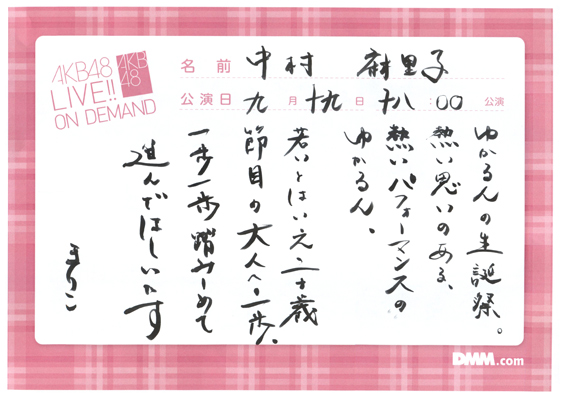 AKB48
LIVE!!
ON DEMAND
AKB
48
名前 中村 麻里子
公演日 九月 十九日 十八:00 公演
ゆかるんの生誕祭。
熱い思いのある、
熱いパフォーマンスの
ゆかるん、
若いとはいえ二十歳
節目の大人へ一歩、
一歩一歩踏みしめて
進んでほしいです
まりこ
DMM.com